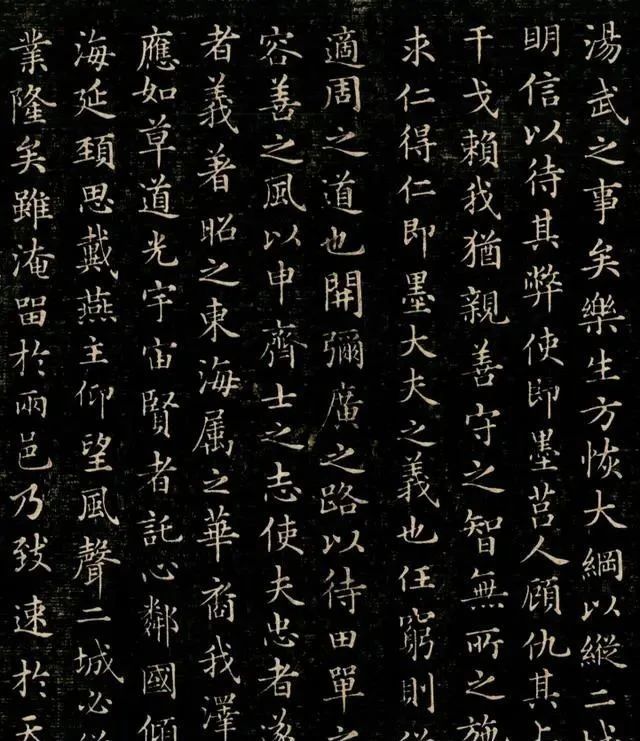 湯武之事矣樂生方恢大綱以縱二城
明信以待其弊使即墨莒人顧仇其上
干戈賴我猶親善守之智無所之施
求仁得仁即墨大夫之義也任窮則從
適周之道也開彌廣之路以待田單之
容善之風以申齊士之志使夫忠者遂
者義著昭之東海属之華裔我澤
應如草道光宇宙賢者託心鄰國傾
海延頚思戴燕主仰望風聲二城必從
業隆矣雖淹留於兩邑乃致速於天